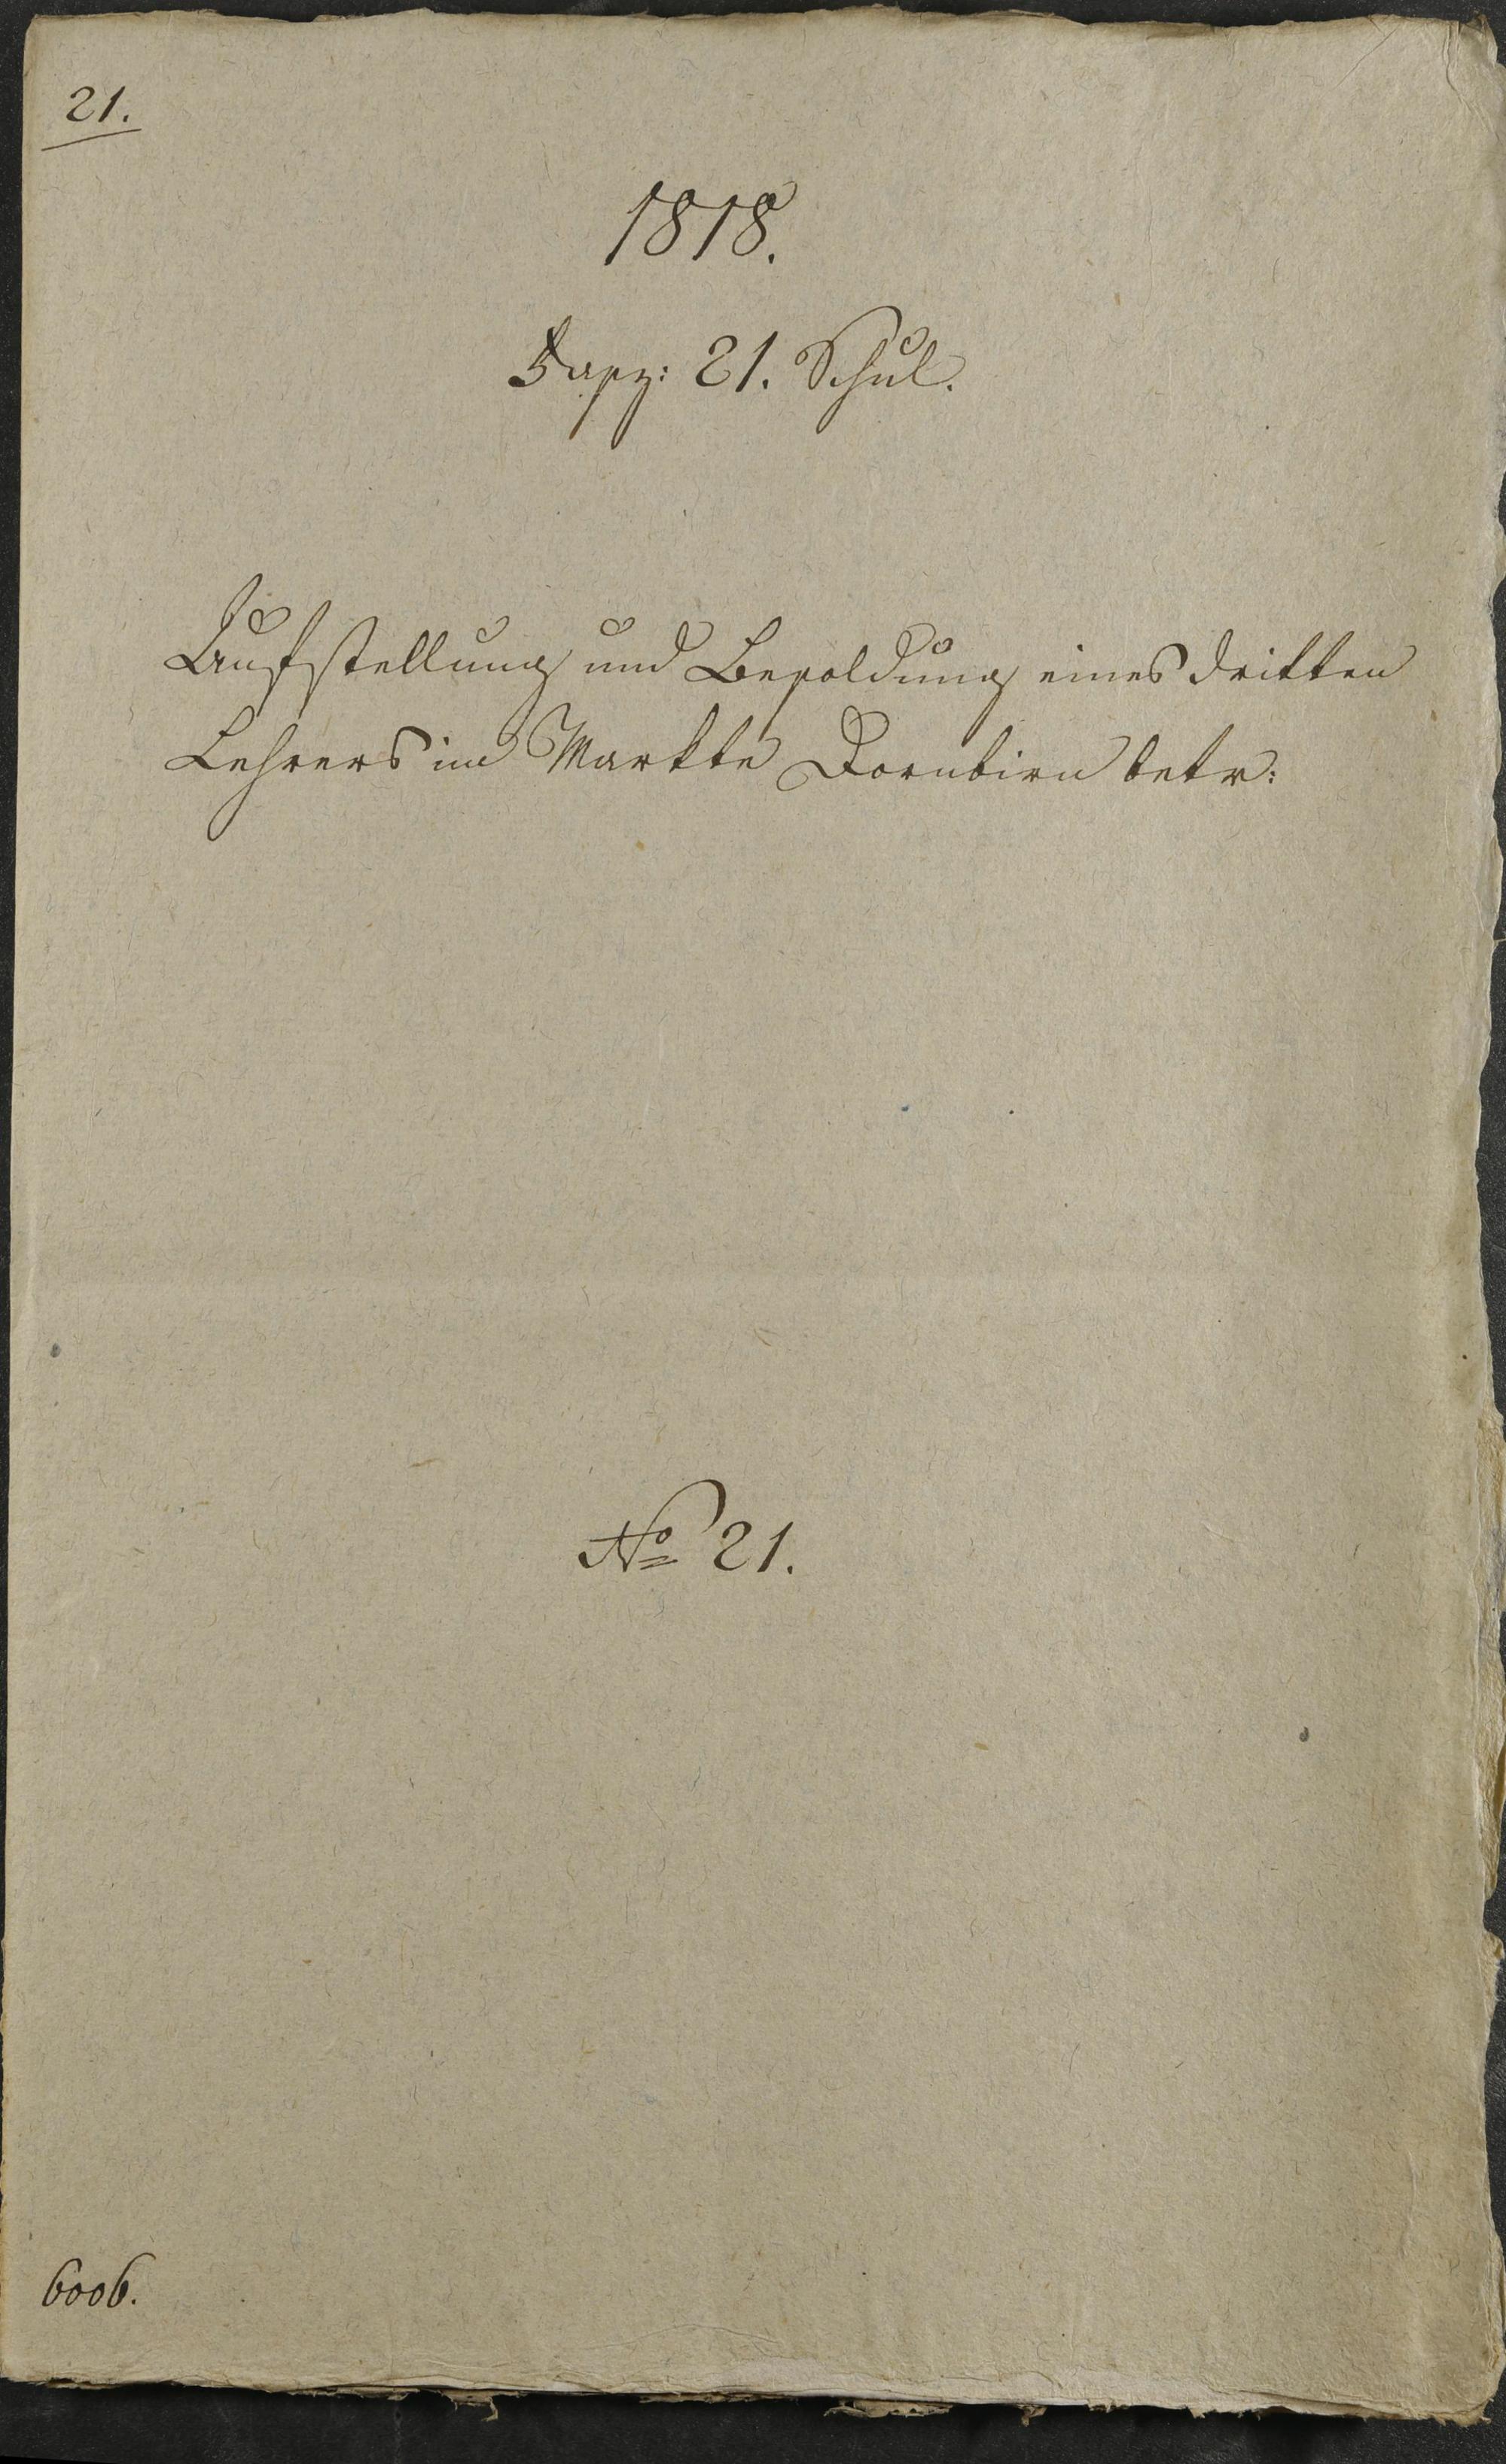 21.
1818.
Fasz: 21. Schul.
Aufstellung und Besoldung eines dritten
Lehrers im Markte Dornbirn betr:
No 21.
6006.